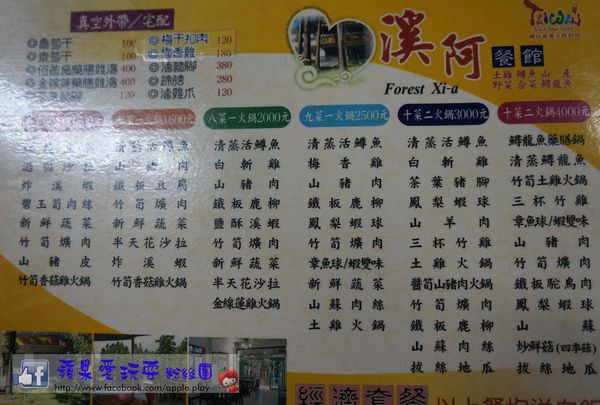 真空外帶/宅配
◎魯筍干 100
◎東筍干 100
◎何首烏藥膳雞湯 400
400
120
◎梅干扣肉 120
◎梅香雞 180
◎滷蹄腳 380
◎蹄膀 280
◎滷雞爪 120
溪阿
餐館
Forest Xi-a
土雞 鱒魚 山產
野菜 台菜 鱘龍魚
TAIWAN
Touch Your Heart
1600元
清蒸活鱒魚
山豬肉
炸溪蝦
碧玉筍肉絲
新鮮蔬菜
竹筍爌肉
山豬皮
竹筍香菇雞火鍋
清蒸活鱒魚
山豬肉
鐵板豆腐
新鮮蔬菜
竹筍爌肉
半天花沙拉
炸溪蝦
竹筍香菇雞火鍋
八菜一火鍋2000元
清蒸活鱒魚
白斬雞
山豬肉
鐵板鹿柳
鹽酥溪蝦
竹筍爌肉
新鮮蔬菜
半天花沙拉
金線蓮雞火鍋
九菜一火鍋2500元
清蒸活鱒魚
梅香雞
山豬肉
鐵板鹿柳
鳳梨蝦球
竹筍爌肉
章魚球/蝦雙味
新鮮蔬菜
山蘇肉絲
土雞火鍋
十菜二火鍋3000元
清蒸活鱒魚
白斬雞
茶葉豬腳
鳳梨蝦球
山羊肉
三杯竹雞
土雞火鍋
醬筍山豬肉火鍋
竹筍爌肉
鐵板鹿柳
山蘇肉絲
拔絲地瓜
十菜二火鍋4000元
鱘龍魚藥膳鍋
清蒸鱘龍魚
竹筍土雞火鍋
三杯竹雞
章魚球/蝦雙味
山豬肉
竹筍爌肉
鐵板鴕鳥肉
鳳梨蝦球
山蘇
炒鮮菇(四季菇)
拔絲地瓜
經濟套餐
以上餐均送白飯
蘋果愛玩耍 粉絲團
http://www.facebook.com/apple.play